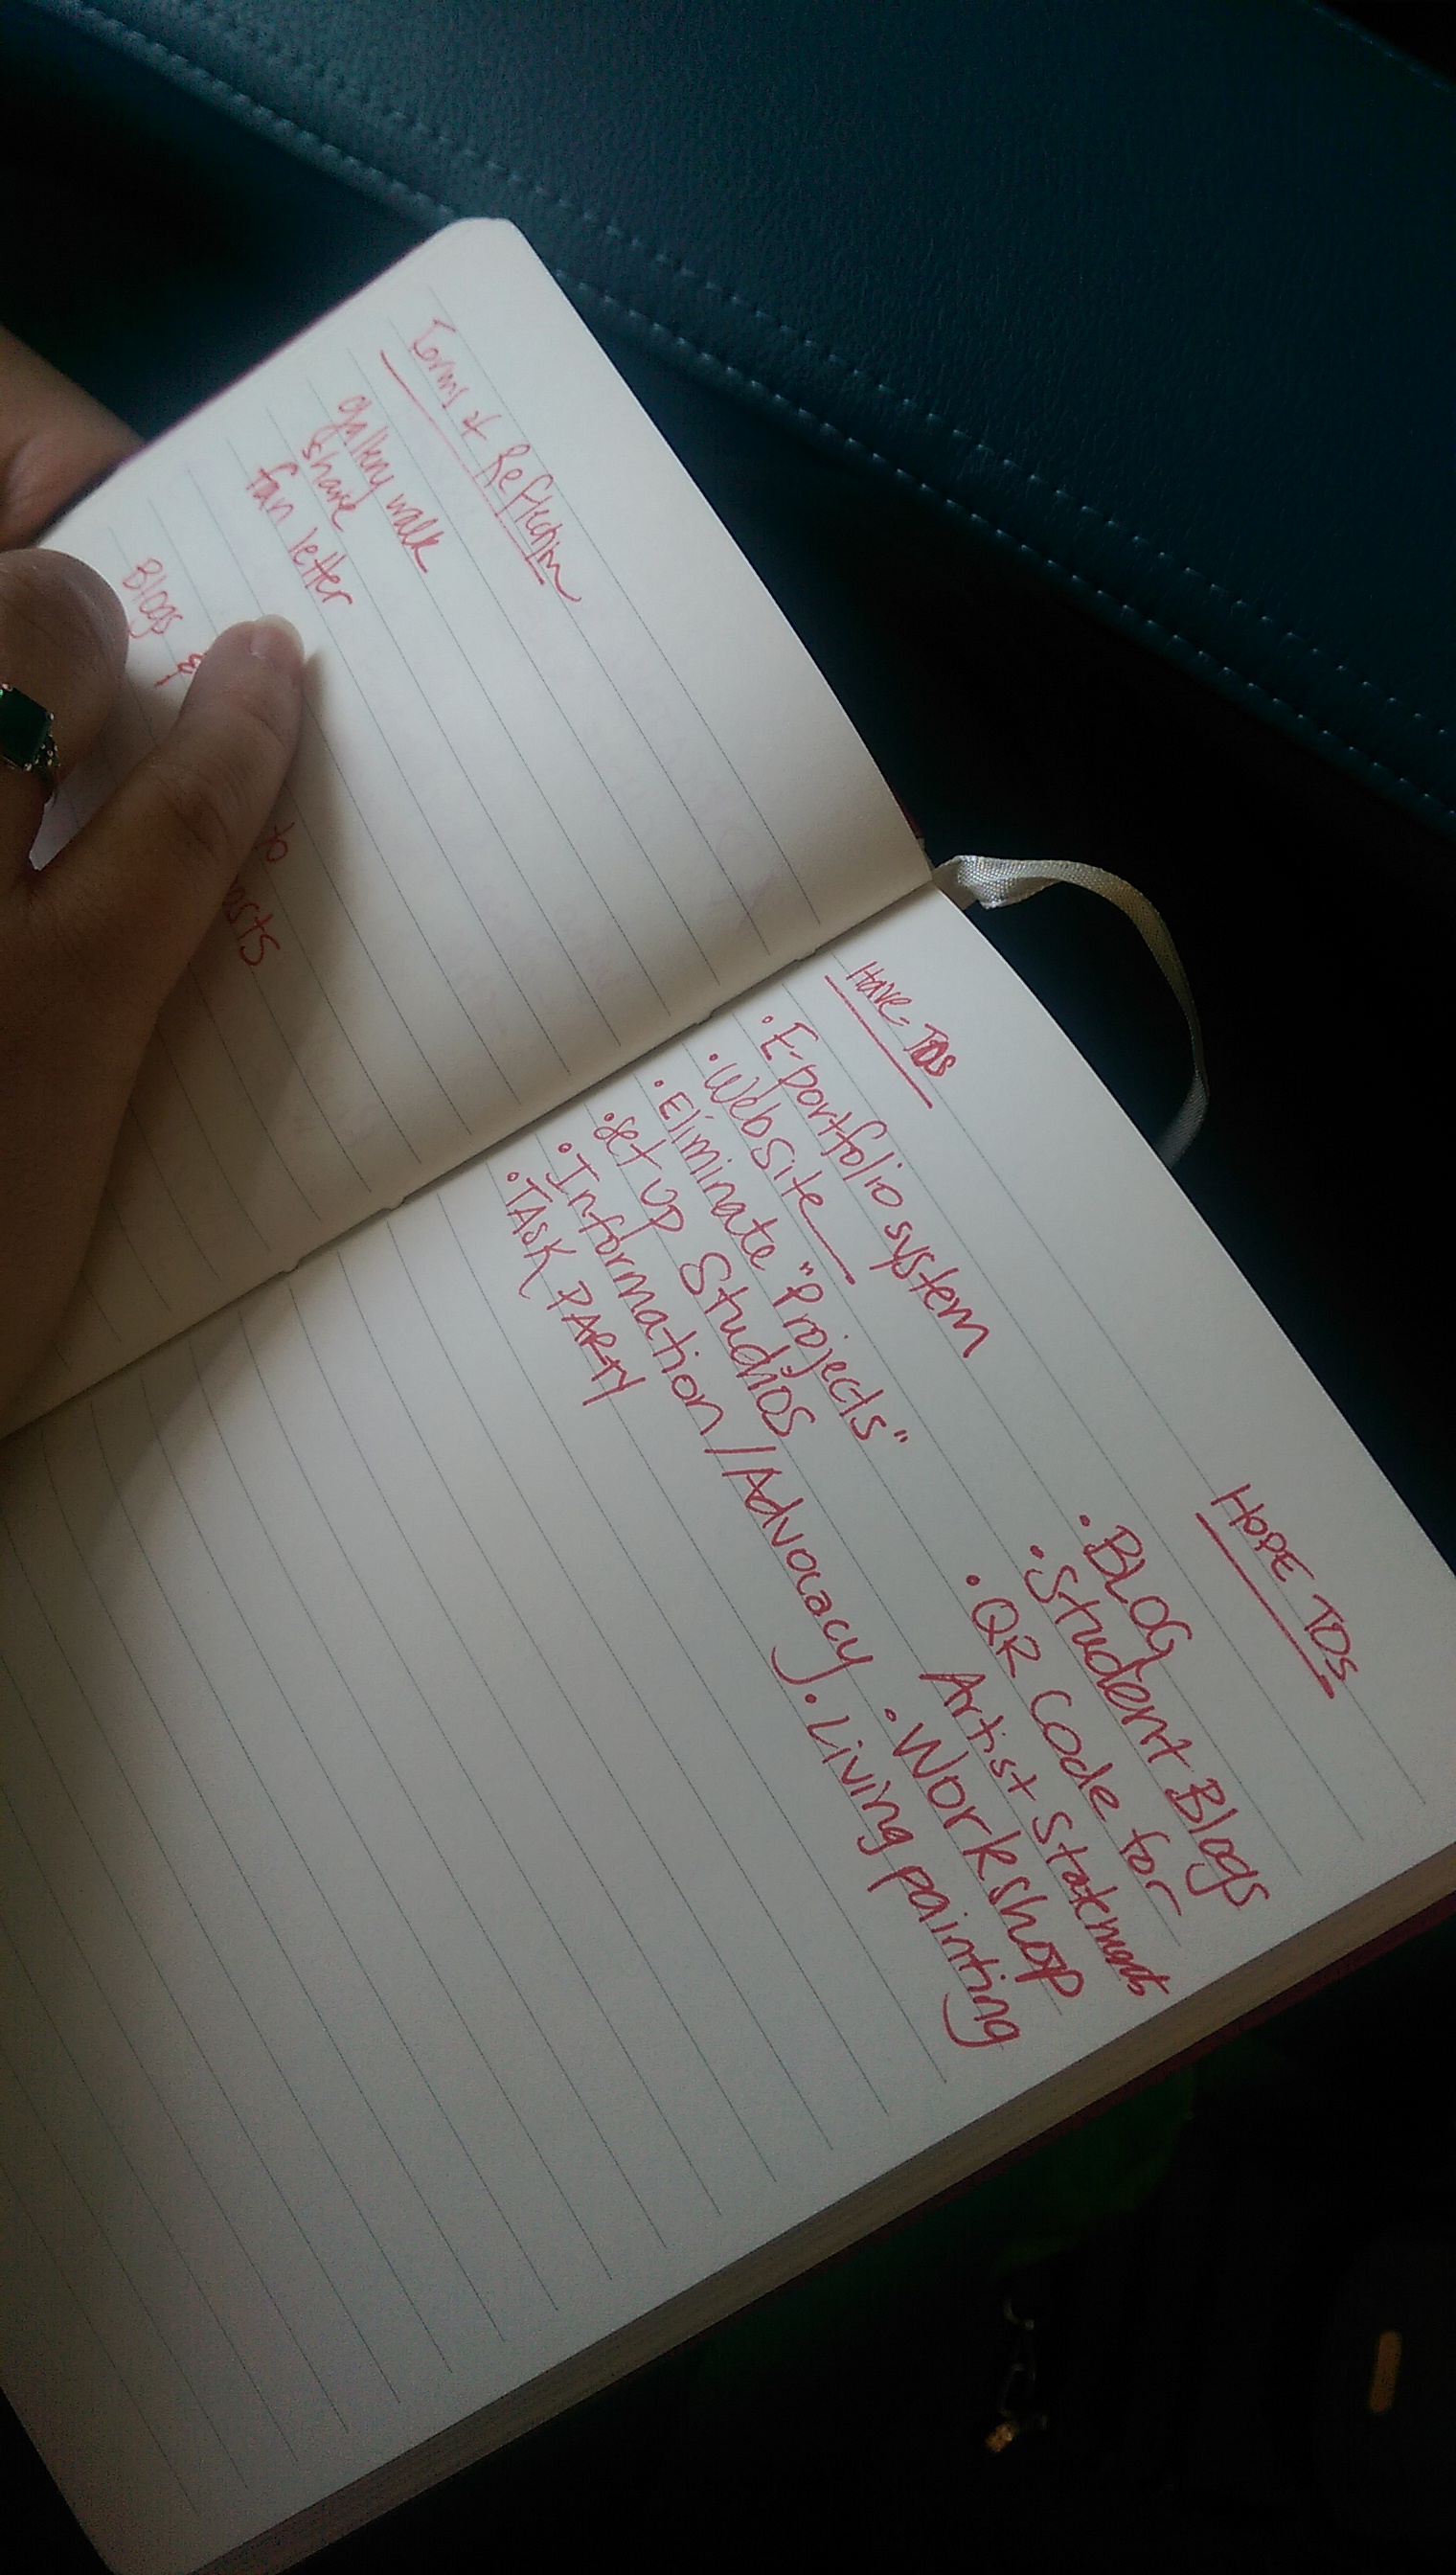 Forms of Reflection
gallery walk
share
fan letter
Blogs &
to
HAVE-TOS
• E-portfolio system
• Website
• Eliminate "Projects"
• Set up Studios
• Information/Advocacy
• TASK PARTY
HOPE TOS
• BLOG
• Student Blogs
• QR Code for
Artist Statements
• Workshop
• Living painting